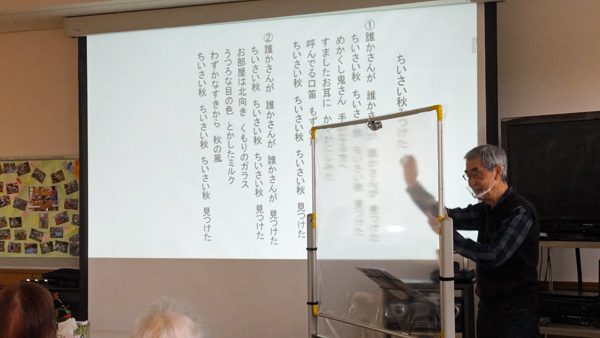 ちいさい秋
① 誰かさんが 誰かさんが 見つけた
ちいさい秋 ちいさい秋 見つけた
めかくし鬼さん 手 方へ
すましたお耳に か
呼んでる口笛 もず
ちいさい秋 ちいさい秋 ちいさい秋 見つけた
② 誰かさんが 誰かさんが 誰かさんが 見つけた
ちいさい秋 ちいさい秋 ちいさい秋 見つけた
お部屋は北向き くもりのガラス
うつろな目の色 とかしたミルク
わずかなすきから 秋の風
ちいさい秋 ちいさい秋 ちいさい秋 見つけた